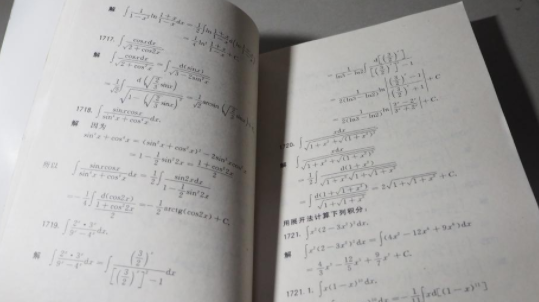 解 ∫ 1/(1-x²) ln (1+x)/(1-x) dx = 1/2 ∫ ln
= 1/4 ln²
1717. ∫ cosxdx/√(2+cos2x).
解 ∫ cosxdx/√(2+cos2x) = ∫ d(sinx)/√(3-2sin²x)
= 1/√2 ∫ d(√(2/3) sinx)/√(1-(√(2/3) sinx)²) = 1/√2 arcsin(√(2/3) sinx)
1718. ∫ sinxcosx/(sin⁴x+cos⁴x) dx.
解 因为
sin⁴x+cos⁴x=(sin²x+cos²x)²-2sin²xcos²x
= 1 - 1/2 sin²2x = (1+cos²2x)/2
所以 ∫ sinxcosx/(sin⁴x+cos⁴x) dx = 1/2 ∫ sin2xdx/(1-1/2 sin²2x)
= -1/4 ∫ d(cos2x)/((1+cos²2x)/2) = -1/2 arctg(cos2x)+C.
1719. ∫ 2ˣ·3ˣ/(9ˣ-4ˣ) dx.
解 ∫ 2ˣ·3ˣ/(9ˣ-4ˣ) dx = ∫ (3/2)ˣ/([(3/2)ˣ]²-1) dx
= 1/(ln3-ln2) ∫ d[(3/2)ˣ]/([(3/2)ˣ]²-1)
= 1/(2(ln3-ln2)) ln|((3/2)ˣ-1)/((3/2)ˣ+1)|+C
= 1/(2(ln3-ln2)) ln|(3ˣ-2ˣ)/(3ˣ+2ˣ)|+C.
1720. ∫ xdx/√(1+x²+√(1+x²)³).
解 ∫ xdx/√(1+x²+√(1+x²)³)
= 1/2 ∫ d(1+x²)/√(1+x²)√(1+√(1+x²))
= ∫ d(1+√(1+x²))/√(1+√(1+x²)) = 2√(1+√(1+x²))+C
用展开法计算下列积分:
1721. ∫x²(2-3x²)²dx.
解 ∫x²(2-3x²)²dx = ∫(4x²-12x⁴+9x⁶)dx
= 4/3 x³ - 12/5 x⁵ + 9/7 x⁷ + C.
1721. 1. ∫x(1-x)¹⁰dx.